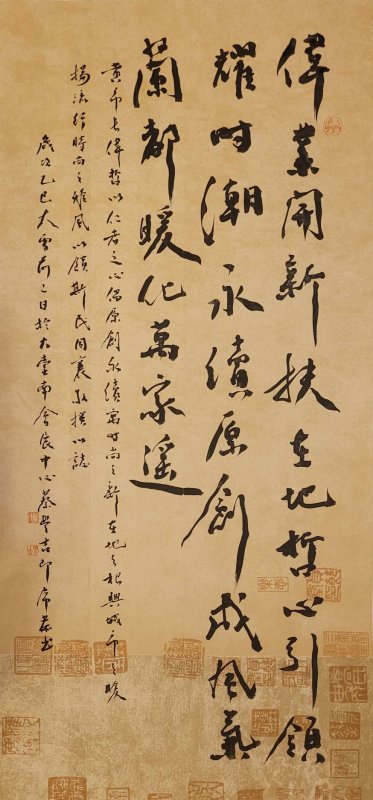 偉業開新扶在地哲心引領
耀時潮永續原創成風氣
蘭都暖化萬家遙
黃市長偉哲以仁者之心倡原創永續寓時尚之新在地之根興城市之暖
揚流行時尚之雅風以領斯民同襄敬撰以誌
歲次乙巳大雪前二日於大臺南會展中心蔡豐吉即席并書